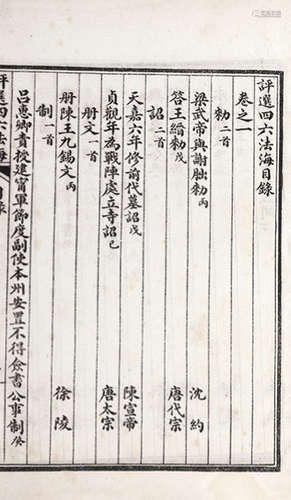 評選四六法海目錄
卷之一
勅二首
梁武帝與謝朏勅丙 沈約
答王縉勅戊 唐代宗
詔二首
天嘉六年修前代墓詔戊 陳宣帝
貞觀年為戰陣處立寺詔己 唐太宗
冊文一首
冊陳王九錫文丙 徐陵
制一首
呂惠卿責授建甯軍節度副使本州安置不得僉書公事制癸
評選四六法海
目錄
一